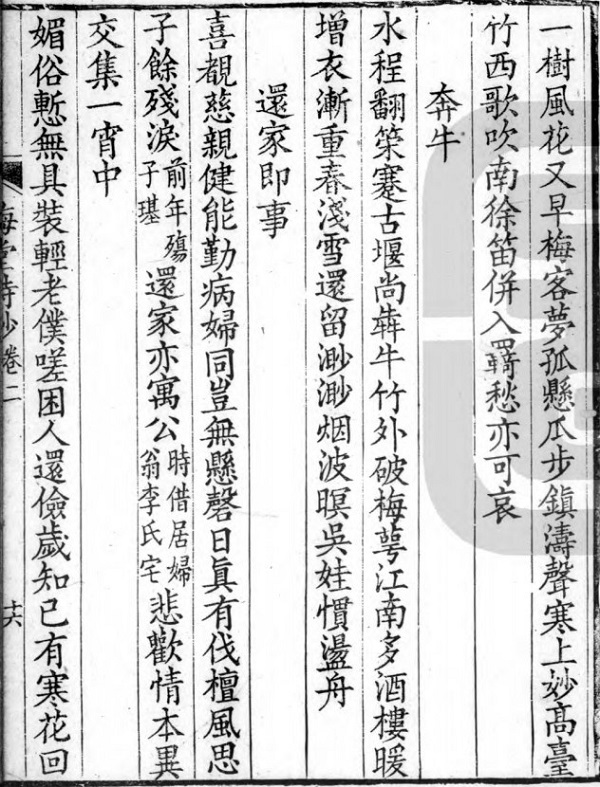 一樹風花又早梅客夢孤懸瓜步鎮濤聲寒上妙高臺
竹西歌吹南徐笛併入羇愁亦可哀
奔牛
水程翻筞蹇古堰尚犇牛竹外破梅萼江南多酒樓暖
增衣漸重春淺雪還留渺渺烟波暝吳娃慣盪舟
還家即事
喜覩慈親健能勤病婦同豈無懸磬日眞有伐檀風思
子餘殘淚前年殤子堪還家亦寓公時借居婦翁李氏宅悲歡情本異
交集一宵中
媚俗慙無具裝輕老僕嗟困人還儉歲知已有寒花回
詩鈔卷二
十六